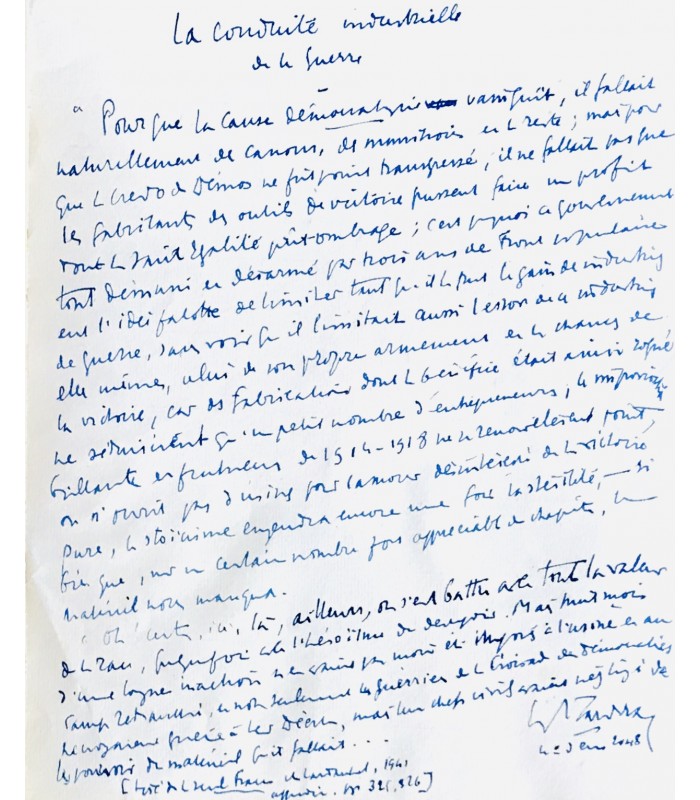 La conduite industrielle
de la Guerre
" Pour que la cause démocratique vainquît, il fallait
naturellement des canons, des munitions et le reste ; mais pour
que le credo de Démos ne fût point transgressé, il ne fallait pas que
les fabricants des outils de victoire pussent faire un profit
dont la Sainte Egalité prît ombrage ; c'est pourquoi ce gouvernement
tout démuni et désarmé par trois ans de Front populaire
eut l'idée falotte de limiter tant qu'il le put le gain des industries
de guerre, sans voir qu'il limitait aussi l'essor de ces industries
elles mêmes, celui de son propre armement et les chances de
la victoire, car des fabrications dont le bénéfice était ainsi rogné
ne séduisirent qu'un petit nombre d'entrepreneurs ; les improvisations
brillantes et fructueuses de 1914-1918 ne se renouvelèrent point,
on n'ouvrit pas d'usines pour l'amour désintéressé de la victoire
pure, le stoïcisme engendra encore une fois la stérilité, — si
bien que, sur un certain nombre fort appréciable de chapitres, le
matériel nous manqua.
" Oh ! certes, ici, là, ailleurs, on s'est battu avec toute la valeur
de la race, quelquefois avec l'héroïsme du désespoir. Mais huit mois
d'une longue inaction n'en avaient pas moins été imposés à l'usine et au
camp retranché, et non seulement les guerriers de la Croisade des démocraties
, mais leurs chefs civils avaient négligé de
les pourvoir du matériel qu'il fallait . . .
[ de la seule France , 1941
pp 325, 326 ]